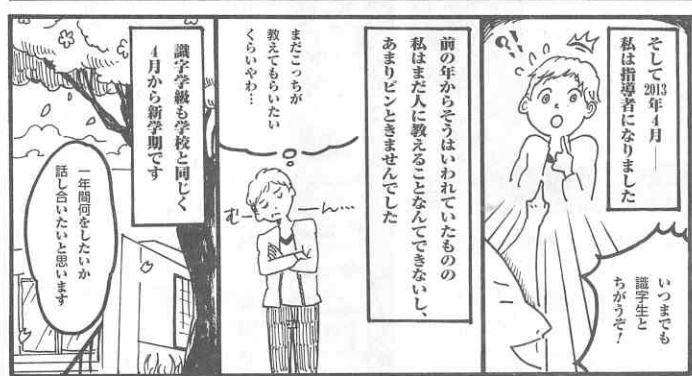 そして2013
年4月―
私は指導者になりました
?!
いつまでも
識字生と
ちがうぞ！
前の年からそうはいわれていたものの
私はまだ人に教えることなんてできないし、
あまりピンときませんでした
まだこっちが
教えてもらいたい
くらいやわ…
むーーん…
識字学級も学校と同じく
4月から新学期です
一年間何をしたいか
話し合いたいと思います